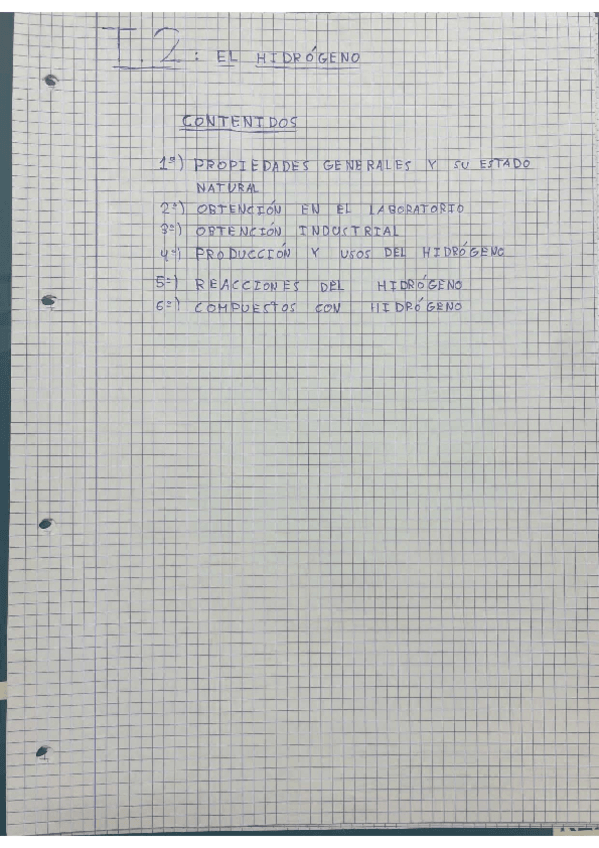 T.2: EL HIDRÓGENO
CONTENIDOS
1º) PROPIEDADES GENERALES Y SU ESTADO
NATURAL
2º) OBTENCIÓN EN EL LABORATORIO
3º) OBTENCIÓN INDUSTRIAL
4º) PRODUCCIÓN Y USOS DEL HIDRÓGENO
5º) REACCIONES DEL HIDRÓGENO
6º) COMPUESTOS CON HIDRÓGENO